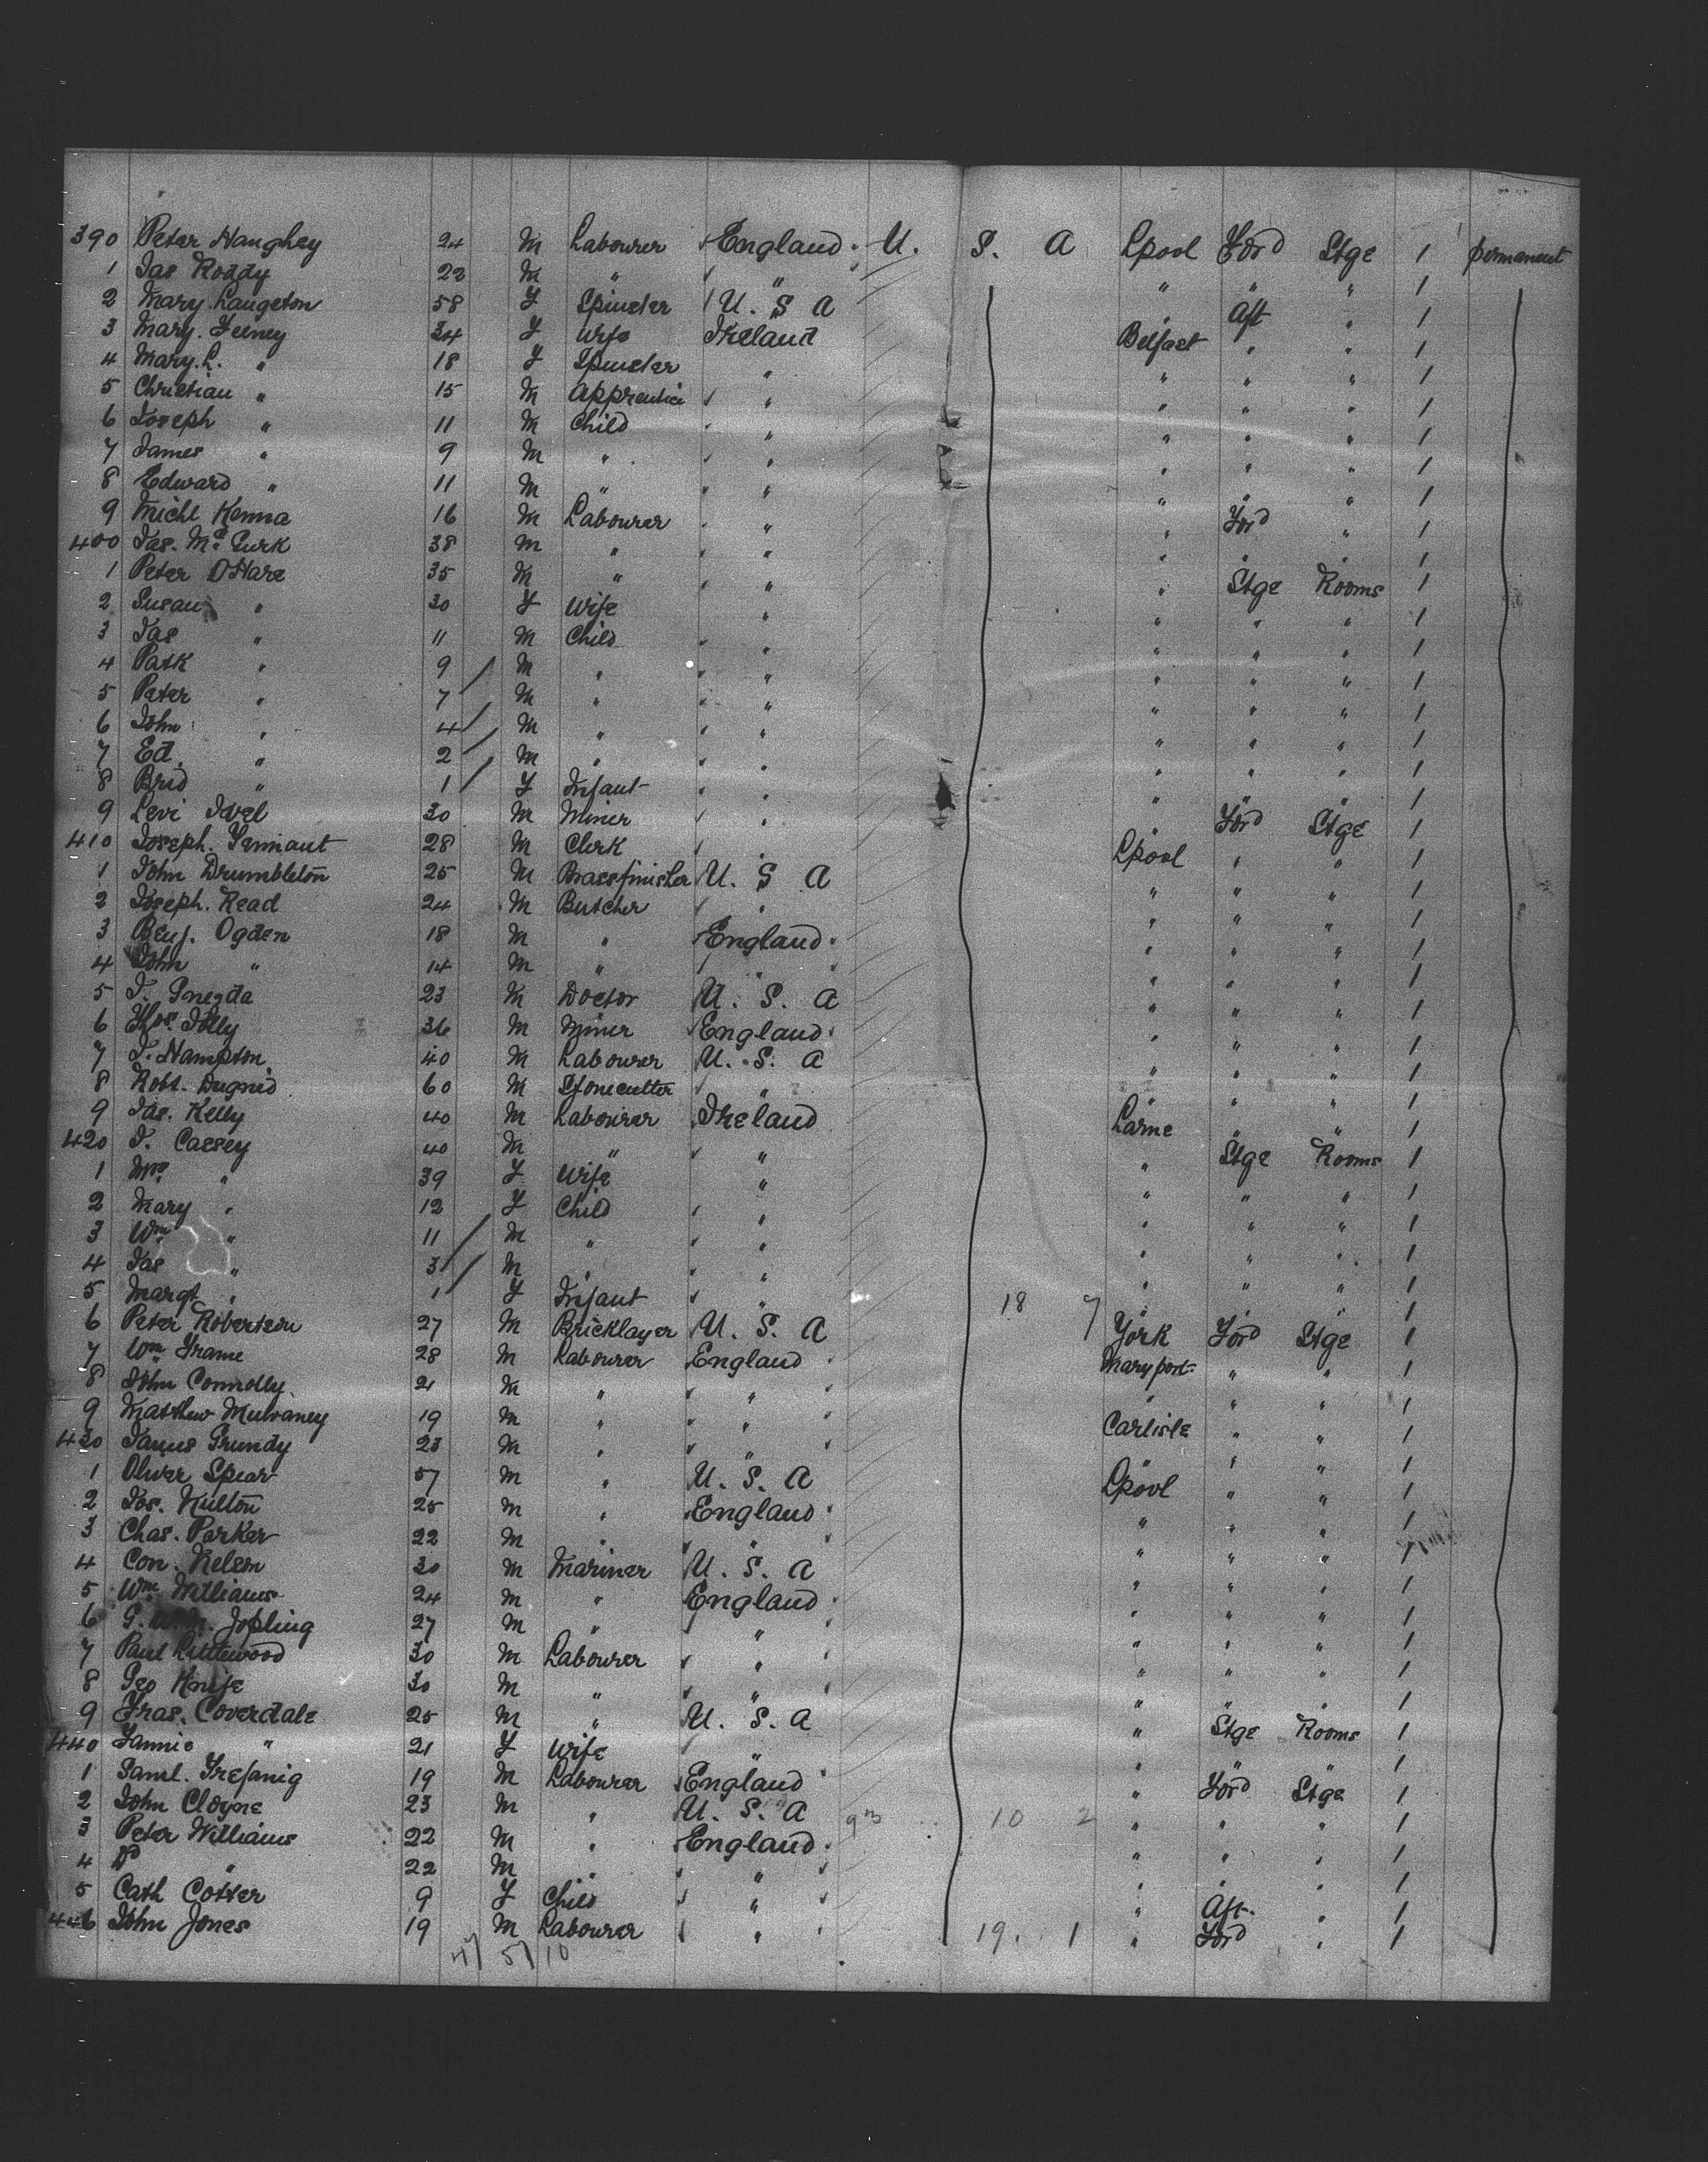 390 Peter Haughey 24 M Labourer England U. S. A Lpool Ford Stge 1 permanent
1 Jas Roddy 22 M " " " " " 1
2 Mary Langeton 58 F Spinster U. S A " Aft " 1
3 Mary Feeney 34 F Wife Ireland Belfast " " 1
4 Mary L. " 18 F Spinster " " " " 1
5 Christian " 15 M Apprentice " " " " 1
6 Joseph " 11 M Child " " " " 1
7 James " 9 M " " " " " 1
8 Edward " 11 M " " " " " 1
9 Michl Kenna 16 M Labourer " " Ford " 1
400 Jas. McGurk 38 M " " " " " 1
1 Peter O'Hare 35 M " " " Stge Rooms 1
2 Susan " 30 F Wife " " " " 1
3 Jas " 11 M Child " " " " 1
4 Patk " 9 M " " " " " 1
5 Peter " 7 M " " " " " 1
6 John " 4 M " " " " " 1
7 Ed. " 2 M " " " " " 1
8 Brid " 1 F Infant " " " " 1
9 Levi 30 M Miner " " Ford Stge 1
410 Joseph. Tennant 28 M Clerk " Lpool " " 1
1 John Drumbleton 25 M Brassfinisher U. S A " " " 1
2 Joseph. Read 24 M Butcher " " " " 1
3 Benj. Ogden 18 M " England " " " 1
4 John " 14 M " " " " " 1
5 J. 23 M Doctor U. S. A " " " 1
6 Thos. Jolly 36 M Miner England " " " 1
7 J. Hampton 40 M Labourer U. S. A " " " 1
8 Robt. Dugnid 60 M Stonecutter " " " " 1
9 Jas. Kelly 40 M Labourer Ireland Larne " " 1
420 J. Cassey 40 M " " " Stge Rooms 1
1 Mrs " 39 F Wife " " " " 1
2 Mary " 12 F Child " " " " 1
3 Wm " 11 M " " " " " 1
4 Jas " 3 M " " " " " 1
5 Margt " 1 F Infant " 18 7 " " " 1
6 Peter Robertson 27 M Bricklayer U. S. A York Ford Stge 1
7 Wm Frame 28 M Labourer England Maryport " " 1
8 John Connolly 21 M " " " " " 1
9 Matthew Mulvaney 19 M " " Carlisle " " 1
430 James Grundy 23 M " " " " " 1
1 Oliver Spear 57 M " U. S. A Lpool " " 1
2 Jos. Hulton 25 M " England " " " 1
3 Chas. Parker 22 M " " " " " 1
4 Con. Nelson 30 M Mariner U. S. A " " " 1
5 Wm Williams 24 M " England " " " 1
6 G. Jopling 27 M " " " " " 1
7 Paul Littlewood 30 M Labourer " " " " 1
8 Geo Knife 30 M " " " " " 1
9 Fras. Coverdale 25 M " U. S. A " Stge Rooms 1
440 Fannie " 21 F Wife " " " " 1
1 Saml. Trefanig 19 M Labourer England " Ford Stge 1
2 John Cloyne 23 M " U. S. A 10 2 " " " 1
3 Peter Williams 22 M " England " " " 1
4 Do " 22 M " " " " " 1
5 Cath Cotter 9 F Child " " Aft. " 1
446 John Jones 19 M Labourer " 19. 1 " Ford " 1
47 51 10